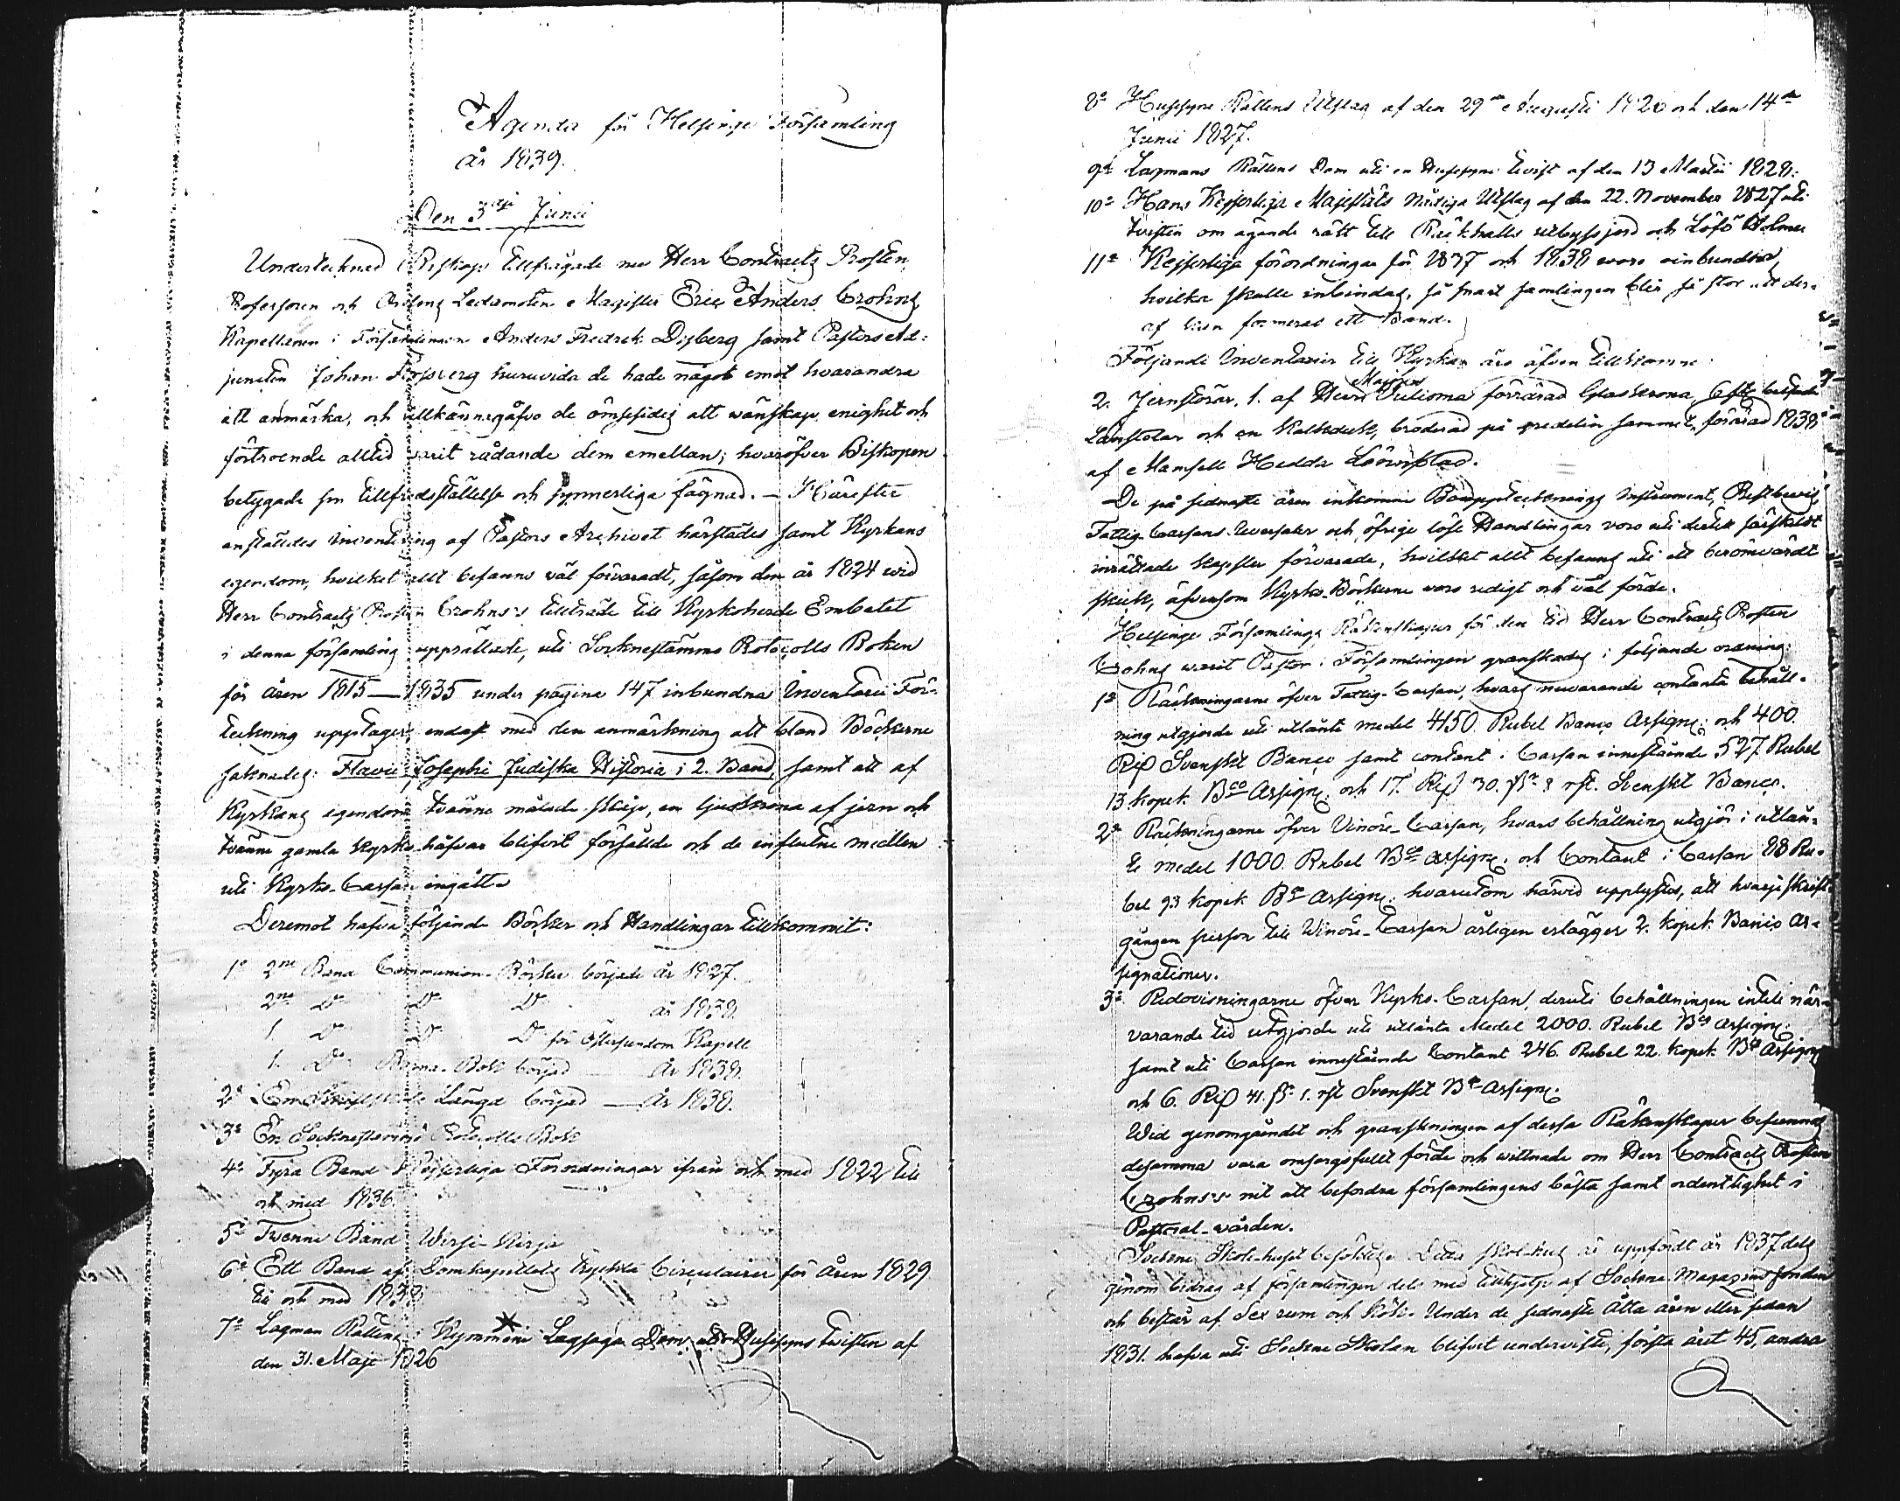 Agenda för Helsinge Församling
år 1839.
Den 3dje Junii
Undertecknad Biskop tillfrågade nu Herr Contracts Prosten,
Professoren och Ordens Ledamoten Magister Eric Anders Crohns
Kapellanen i Församlingen Anders Fredrek Dyberg samt Pastors Ad-
juncten Johan Forsberg huruvida de hade något emot hvarandra
att anmärka, och tillkännegåfvo de ömsesidig att wänskap, enighet och
förtroende alltid varit rådande dem emellan; hvaröfver Biskopen
betygade sin tillfredsställelse och synnerliga fägnad. — Härefter
anställdes inventering af Pastors Archivet härstädes samt Kyrkans
egendom, hvilket allt befanns väl förvaradt, såsom den år 1824 wid
Herr Contracts Prosten Crohns's tillträde till Kyrkoherde Embetet
i denna församling upprättade, uti Sockneståmmo Protocolls Boken
för åren 1815—1835 under pagina 147 inbundna Inventarii För-
teckning upptager, endast med den anmärkning att bland Böckerne
saknades: Flavii Josephi Judiska Historia i 2. Band, samt att af
Kyrkans egendom tvänne målade skåp, en ljuskrona af jern och
tvänne gamla Kyrko håfvar blifvit försålde och de influtne medlen
uti Kyrko-Cassan ingått.
Deremot hafva följande Böcker och Handlingar tillkommit:
1o 2ne Band Communion-Böcker började år 1827.
2ne Do Do Do år 1838.
1. Do Do Do för Östersundom Kapell
1. Do Barna-Bok börjad — År 1838.
2o En Längd börjad — År 1838.
3o En Sockneståmmo Protocolls Bok
4o Fyra Band Kejserliga Förordningar ifrån och med 1822 till
och med 1836.
5o Twenne Band Wirsi-Kirja
6o Ett Band af Domkapitlets tryckta Circulairer för åren 1829
till och med 1838.
7o Lagman Rättens i Kymmene Lagsaga Dom uti Husesyns twisten af
den 31. Maji 1826
8o Husesyns Rättens Utslag af den 29de Augusti 1826 och den 14de
Junii 1827.
9o Lagmans Rättens Dom uti en Husesyns twist af den 13 Martii 1828.
10o Hans Kejserliga Majestäts Nådiga Utslag af den 22. November 1827 uti
twisten om ägande rätt till Räckhalls utbysjord och Löfö Holmar
11o Kejserliga förordningar för 1837 och 1838 woro oinbundne,
hvilka skulle inbindas, så snart samlingen blir så stor att der-
af kan formeras ett Band.
Följande Inventarier till Kyrkan äro äfven tillkomne:
2. Jernstörar, 1. af Herr Majoren Tulioma förärad Glas Krona, 6 st.
Länstolar och en Kalkduk, broderad på gredelin sammet, förärad 1838
af Mamsell Hedda Löfwstad.
De på sednaste åren inkomne Boupptecknings Instrument, Prestbewis,
Fattig Cassans Reverser och öfrige löse Handlingar voro uti dertill särskildt
inrättade kapsler förvarade, hvilket allt befanns uti ett berömvärdt
skick, äfvensom Kyrko-Böckerne woro redigt och väl förde.
Helsinge Församlings Räkenskaper för den tid Herr Contracts Prosten
Crohns warit Pastor i Församlingen granskades i följande ordning:
1o Räkningarne öfver Fattig-Cassan, hvars nuvarande contanta behåll-
ning utgjorde uti utlånte medel 4150 Rubel Banco Assigne; och 400.
Rd Svenskt Banco samt contant i Cassan innestående 527 Rubel
13 kopek Bco Assigne; och 17. Rd 30. sk. 8 rst. Svenskt Banco.
2o Räkningarne öfver Vinöre-Cassan, hvars behållning utgjör i utlån-
te medel 1000 Rubel Bco Assigne; och Contant i Cassan 88 Ru-
bel 93 kopek Bco Assigne; hvarutom härvid upplystes, att hvarje skrift-
gången person till Winöre-Cassan årligen erlägger 2. kopek Banco As-
signationer.
3o Redovisningarne öfver Kyrko-Cassan, deruti behållningen intill när-
varande tid utgjorde uti utlånta Medel 2000. Rubel Bco Assigne;
samt uti Cassan innestående Contant 246. Rubel 22 kopek Bco Assigne
och 6. Rd 41. sk. 1. rst Svenskt Bco Assigne;
Wid genomgåendet och granskningen af dessa Räkenskaper befunnos
desamma vara omsorgsfullt förde och wittnade om Herr Contracts Prosten
Crohns's nit att befordra församlingens bästa samt ordentlighet i
Pastoral-vården.
Sockne Skole-huset besöktes. Detta Skol-hus är uppfördt år 1837 dels
genom bidrag af församlingen dels med tillhjelp af Sockne-Magazins fonden
och består af Sex rum och Kök. Under de sednaste Åtta åren eller sedan
1831. hafva uti Sockne Skolan blifvit underviste, första året 45, andra